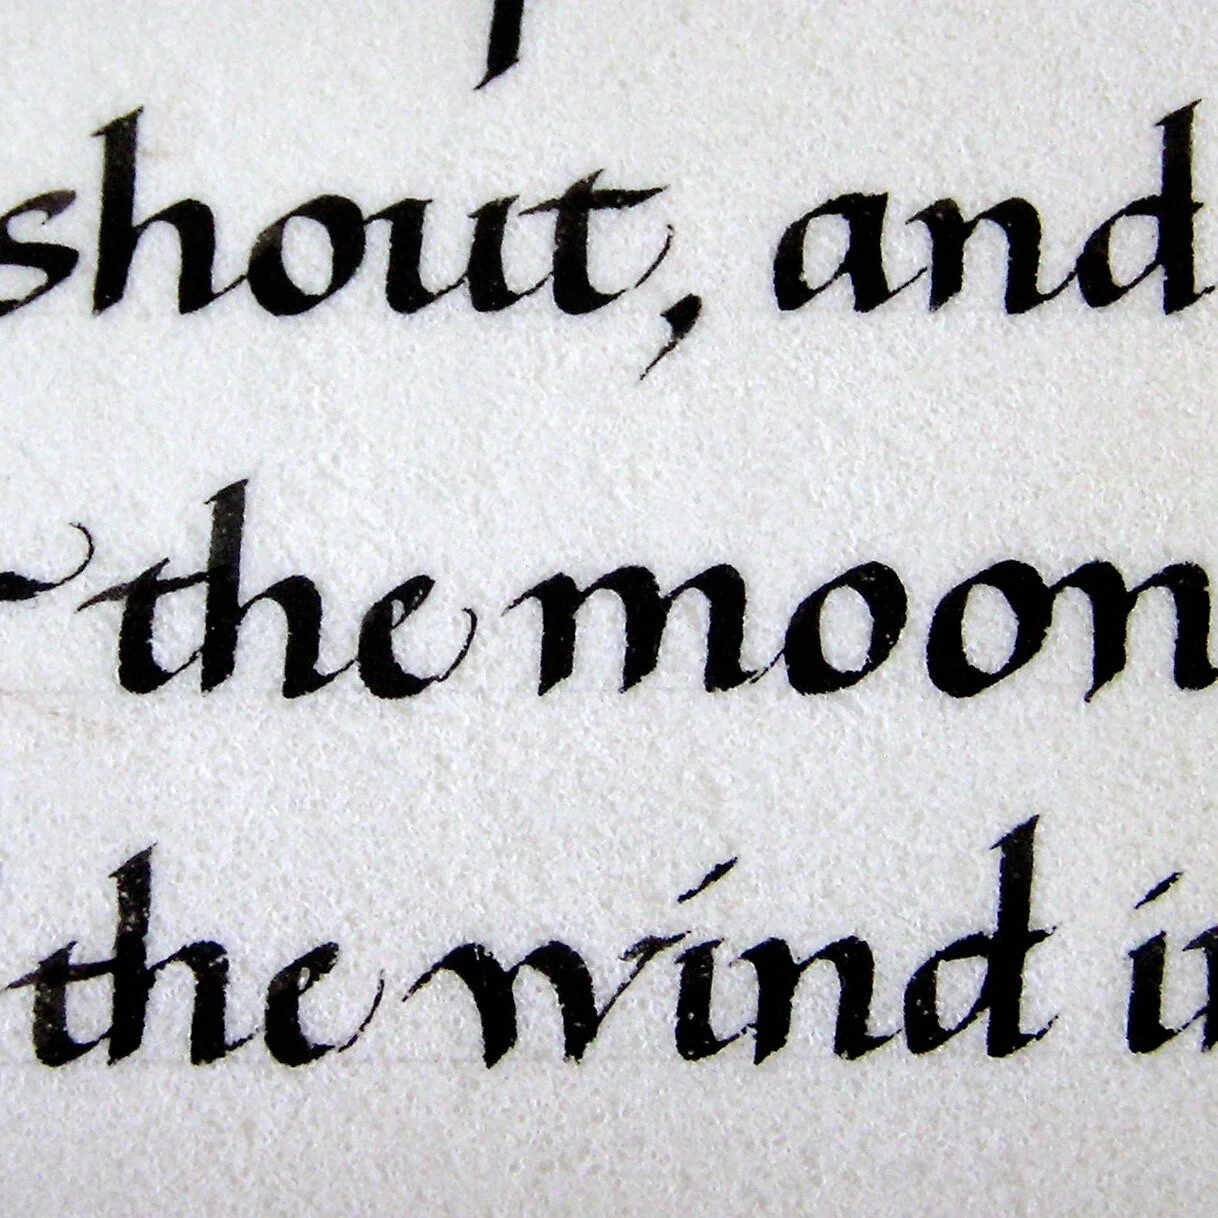 shout, and
the moon
the wind